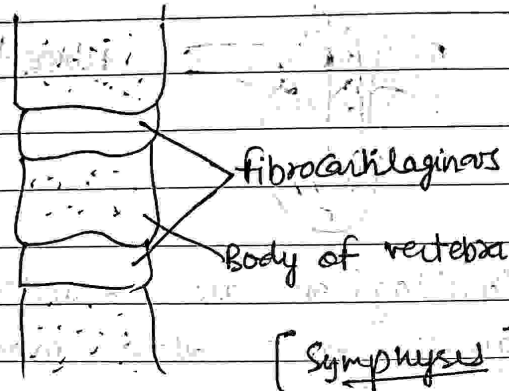 fibrocartilaginous
Body of vertebra
[ Symphyses